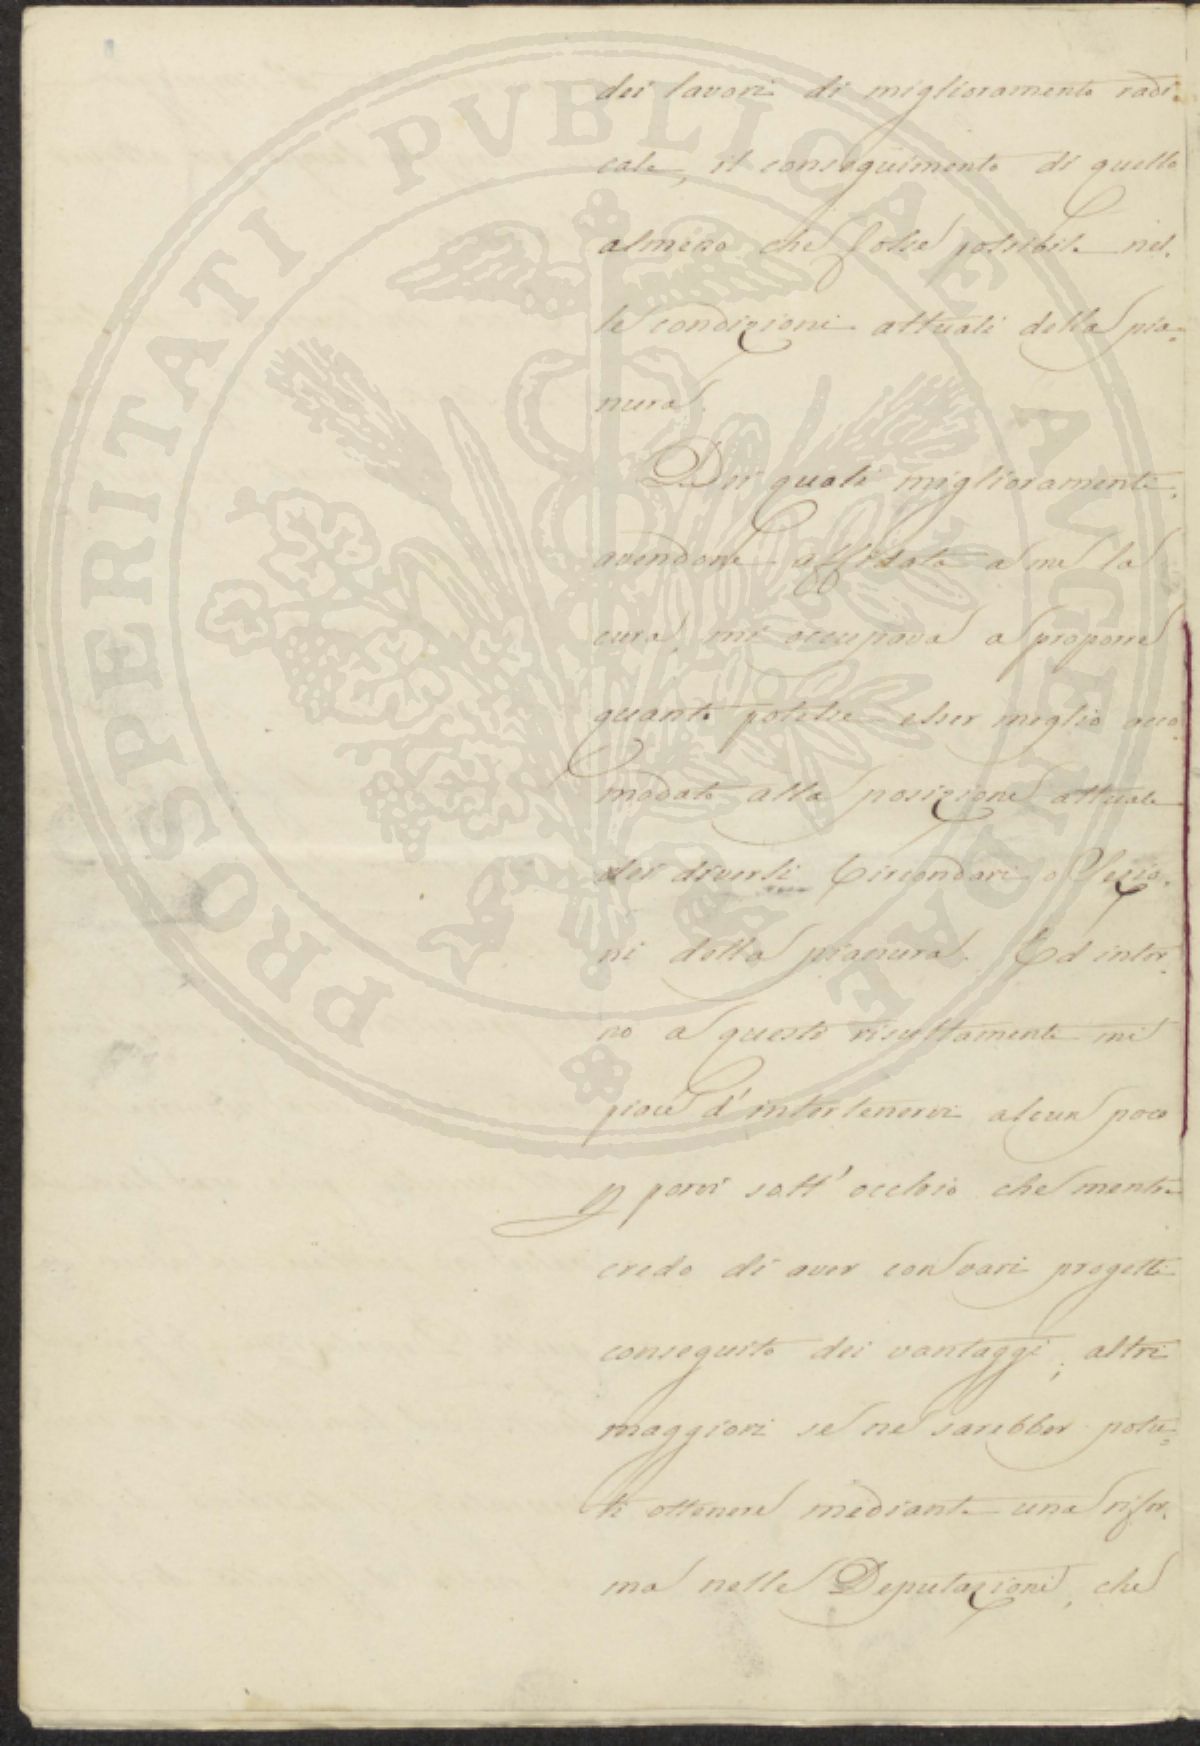 dei lavori di miglioramento radi-
cale, il conseguimento di quello
almeno che fosse possibile nel-
le condizioni attuali della pia-
nura.
Dei quali miglioramenti
avendone affidata a me la
cura, mi occupava a proporre
quanto potesse esser meglio acco-
modato alla posizione attuale
dei diversi Circondari o Sezio-
ni della pianura. Ed intor-
no a questi risultamenti mi
piace d'intertenervi alcun poco
p porvi sott'occhio che mentre
credo di aver con vari progetti
conseguito dei vantaggi, altri
maggiori se ne sarebber potu-
ti ottenere mediante una rifor-
ma nelle Deputazioni, che
PROSPERITATI PVBLICAE AVGENDAE